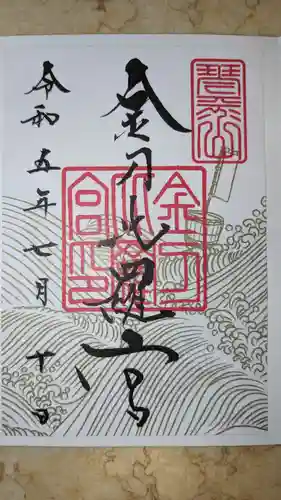 琴平山
金刀比羅宮
金刀
比羅
宮印
令和五年七月十日